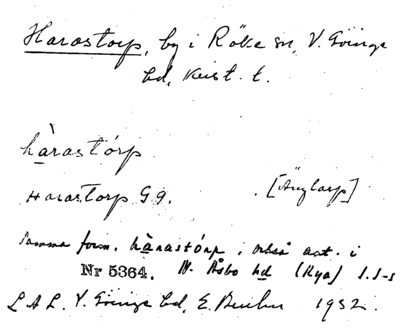 Harastorp, by i Röke sn, V. Göinge
hd, Krist. l.
hàrastórp
Harastorp Gg. [Änglarp]
Samma form, hàrastórp, också ant. i
Nr 5364. N. Åsbo hd (Rya) I.I-s
L A L. V. Göinge hd, E. 1932.